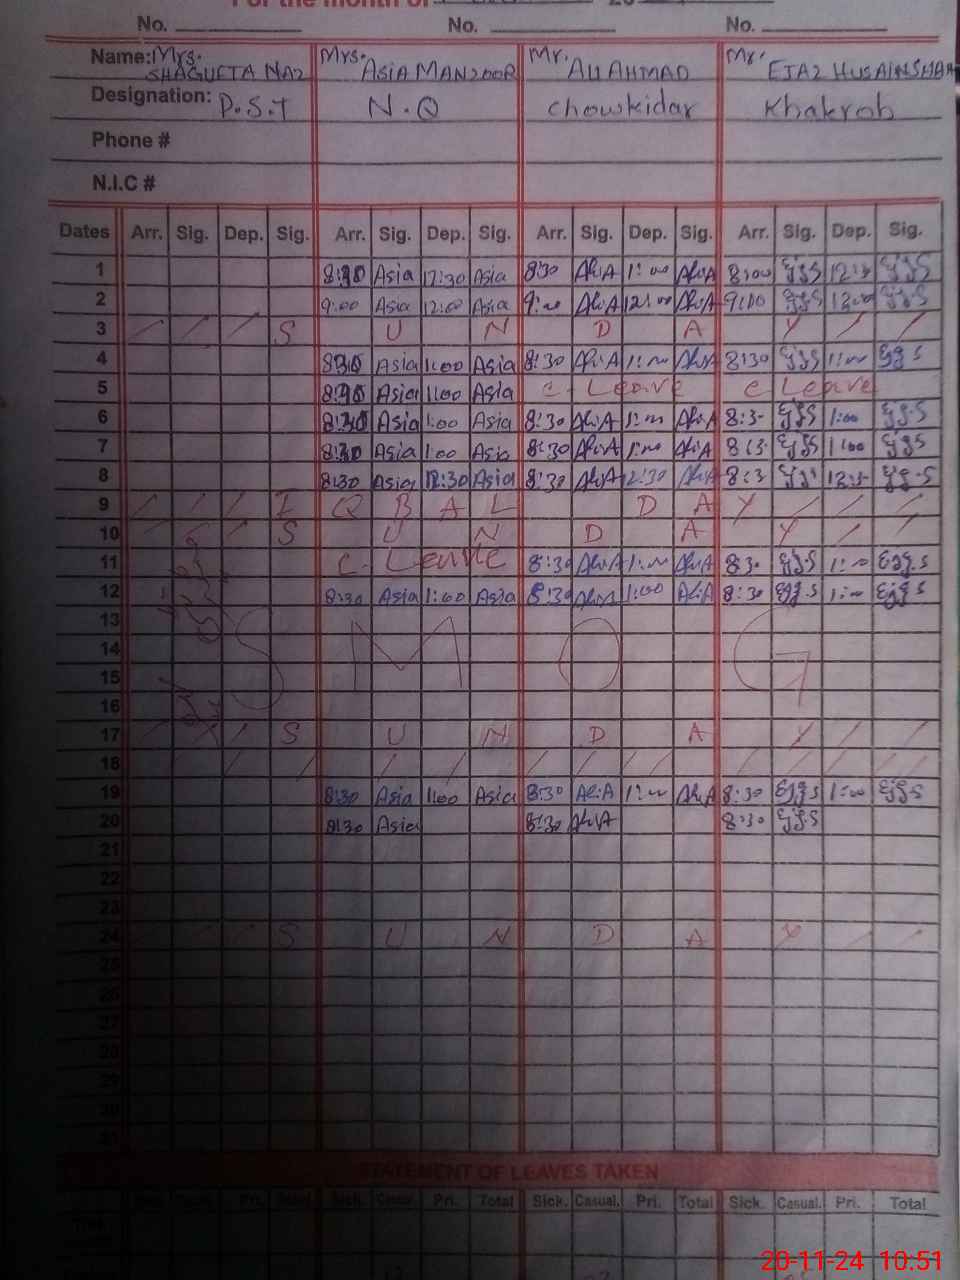 For the month of 20
No. No. No.
Name: Mrs. SHAGUFTA NAZ Mrs. ASIA MANZOOR Mr. ALI AHMAD Mr. EJAZ HUSAIN SHAH
Designation: P.S.T N.Q Chowkidar Khakrob
Phone #
N.I.C #
Dates Arr. Sig. Dep. Sig. Arr. Sig. Dep. Sig. Arr. Sig. Dep. Sig. Arr. Sig. Dep. Sig.
1 8:30 Asia 12:30 Asia 8:30 Ali.A 1:00 Ali.A 8:00 Ejz S Ejz S
2 9:00 Asia 12:00 Asia 9:00 Ali.A 12:00 Ali.A 9:00 Ejz S 12:00 Ejz S
3 / / / S U N D A Y / /
4 8:30 Asia 1:00 Asia 8:30 Ali.A 1:00 Ali.A 8:30 Ejz S 1:00 Ejz S
5 Asia 1:00 Asia C - Leave C Leave
6 8:30 Asia 1:00 Asia 8:30 Ali.A 1:00 Ali.A 8:3- Ejz S 1:00 Ejz.S
7 8:30 Asia 1:00 Asia 8:30 Ali.A 1:00 Ali.A Ejz S 1:00 Ejz S
8 8:30 Asia 12:30 Asia 8:30 Ali.A 12:30 Ali.A 8:3 Ejz S Ejz.S
9 / / / I Q B A L D A Y / / /
10 / / / S U N D A Y / /
11 C - Leave 8:30 Ali.A 1:00 Ali.A 8:30 Ejz.S 1:00 Ejz.S
12 8:30 Asia 1:00 Asia 8:30 Ali.A 1:00 Ali.A 8:30 Ejz.S 1:00 Ejz S
13
14 S M O G
15
16
17 / / / S U N D A Y / /
18 / / / / / / / / / / / / / / /
19 8:30 Asia 1:00 Asia 8:30 Ali.A 1:00 Ali.A 8:30 Ejz S 1:00 Ejz S
20 8:30 Asia 8:30 Ali.A 8:30 Ejz S
21
22
23
24 / / / S U N D A Y / /
25
26
27
28
29
30
31
STATEMENT OF LEAVES TAKEN
Pri. Sick. Casual. Pri. Total Sick. Casual. Pri. Total Sick. Casual. Pri. Total
20-11-24 10:51